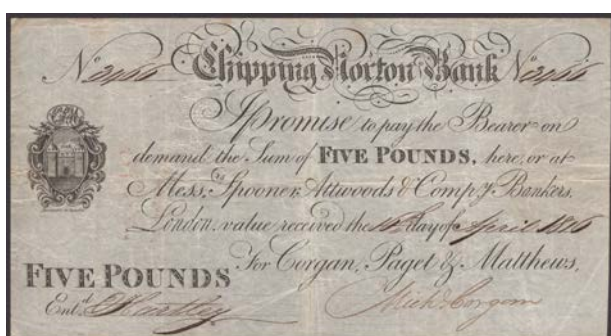 No 2966 Chipping Norton Bank No 2966
I promise to pay the Bearer on
demand the Sum of FIVE POUNDS, here, or at
Messrs. Spooner, Attwoods & Compy. Bankers,
London, value received the day of April 1816
For Corgan, Paget & Matthews,
FIVE POUNDS
Entd. Hartley Mich Corgan